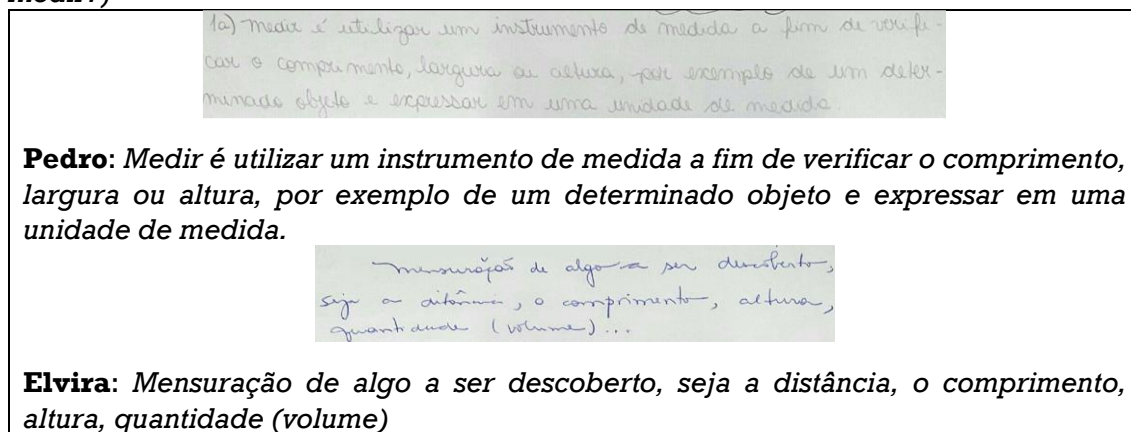 1a) Medir é utilizar um instrumento de medida a fim de verifi-
car o comprimento, largura ou altura, por exemplo de um deter-
minado objeto e expressar em uma unidade de medida.
Pedro: Medir é utilizar um instrumento de medida a fim de verificar o comprimento,
largura ou altura, por exemplo de um determinado objeto e expressar em uma
unidade de medida.
mensuração de algo a ser descoberto,
seja a distância, o comprimento, altura,
quantidade (volume)...
Elvira: Mensuração de algo a ser descoberto, seja a distância, o comprimento,
altura, quantidade (volume)